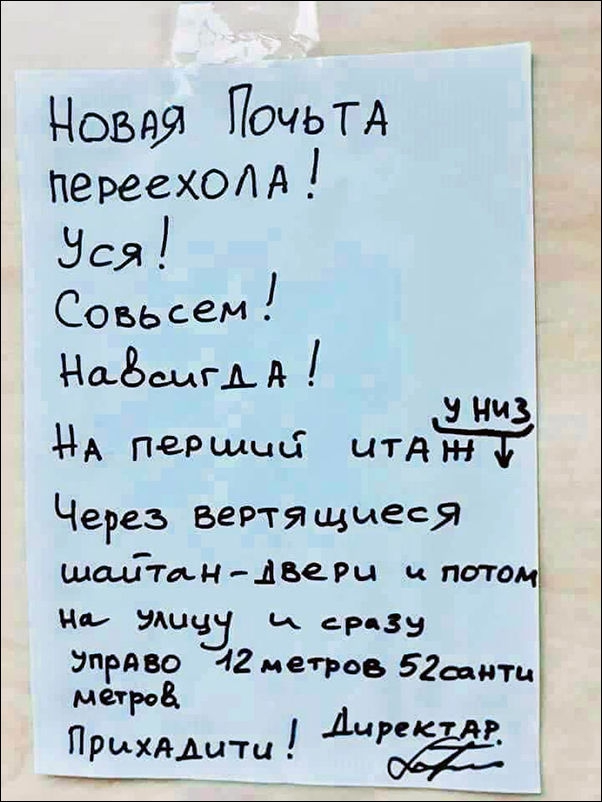 Новая Почьта
переехола!
Уся!
Совьсем!
Навсигда!
У низ
На перший итаж ↓
Через вертящиеся
шайтан-двери и потом
на улицу и сразу
управо 12 метров 52 санти
метров
Прихадити! Директар.